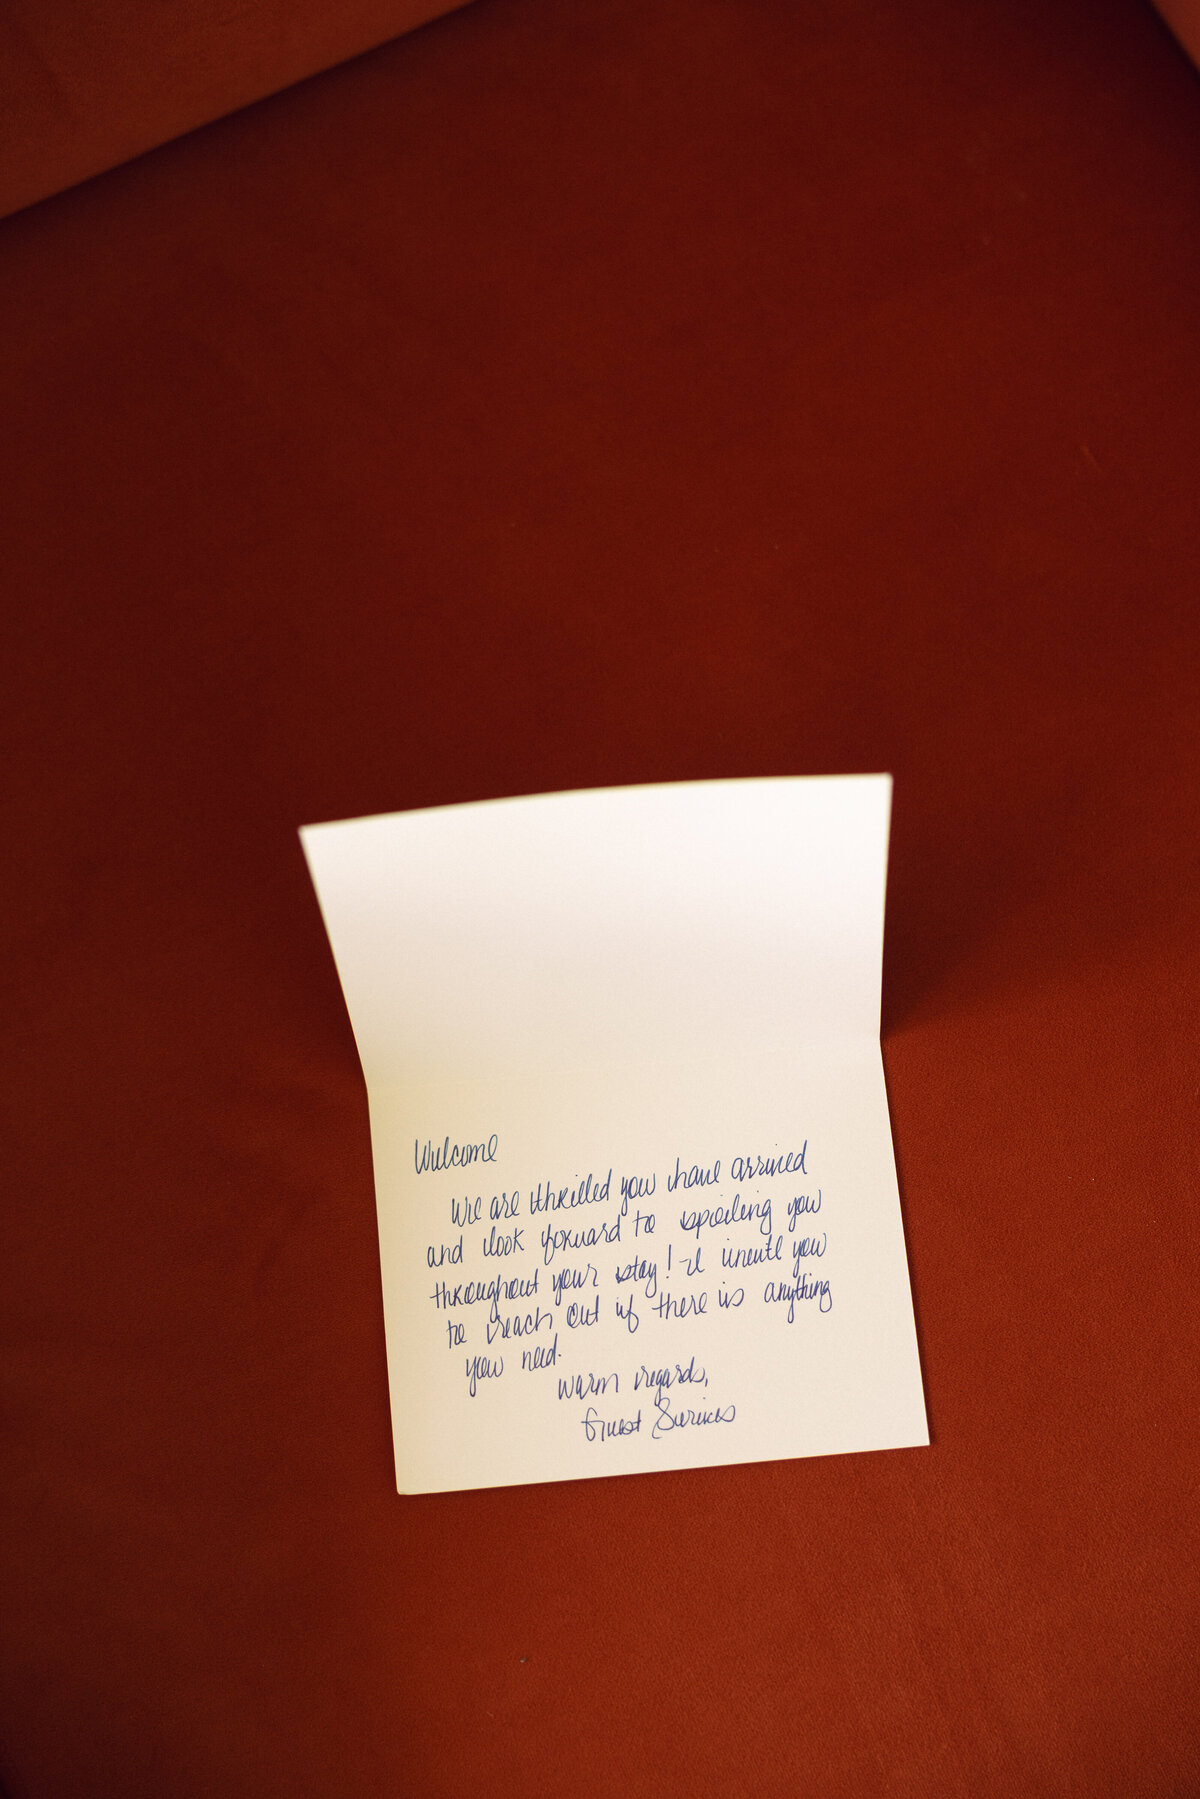 Welcome
We are thrilled you have arrived
and look forward to spoiling you
throughout your stay! I invite you
to reach out if there is anything
you need.
Warm regards,
Guest Services